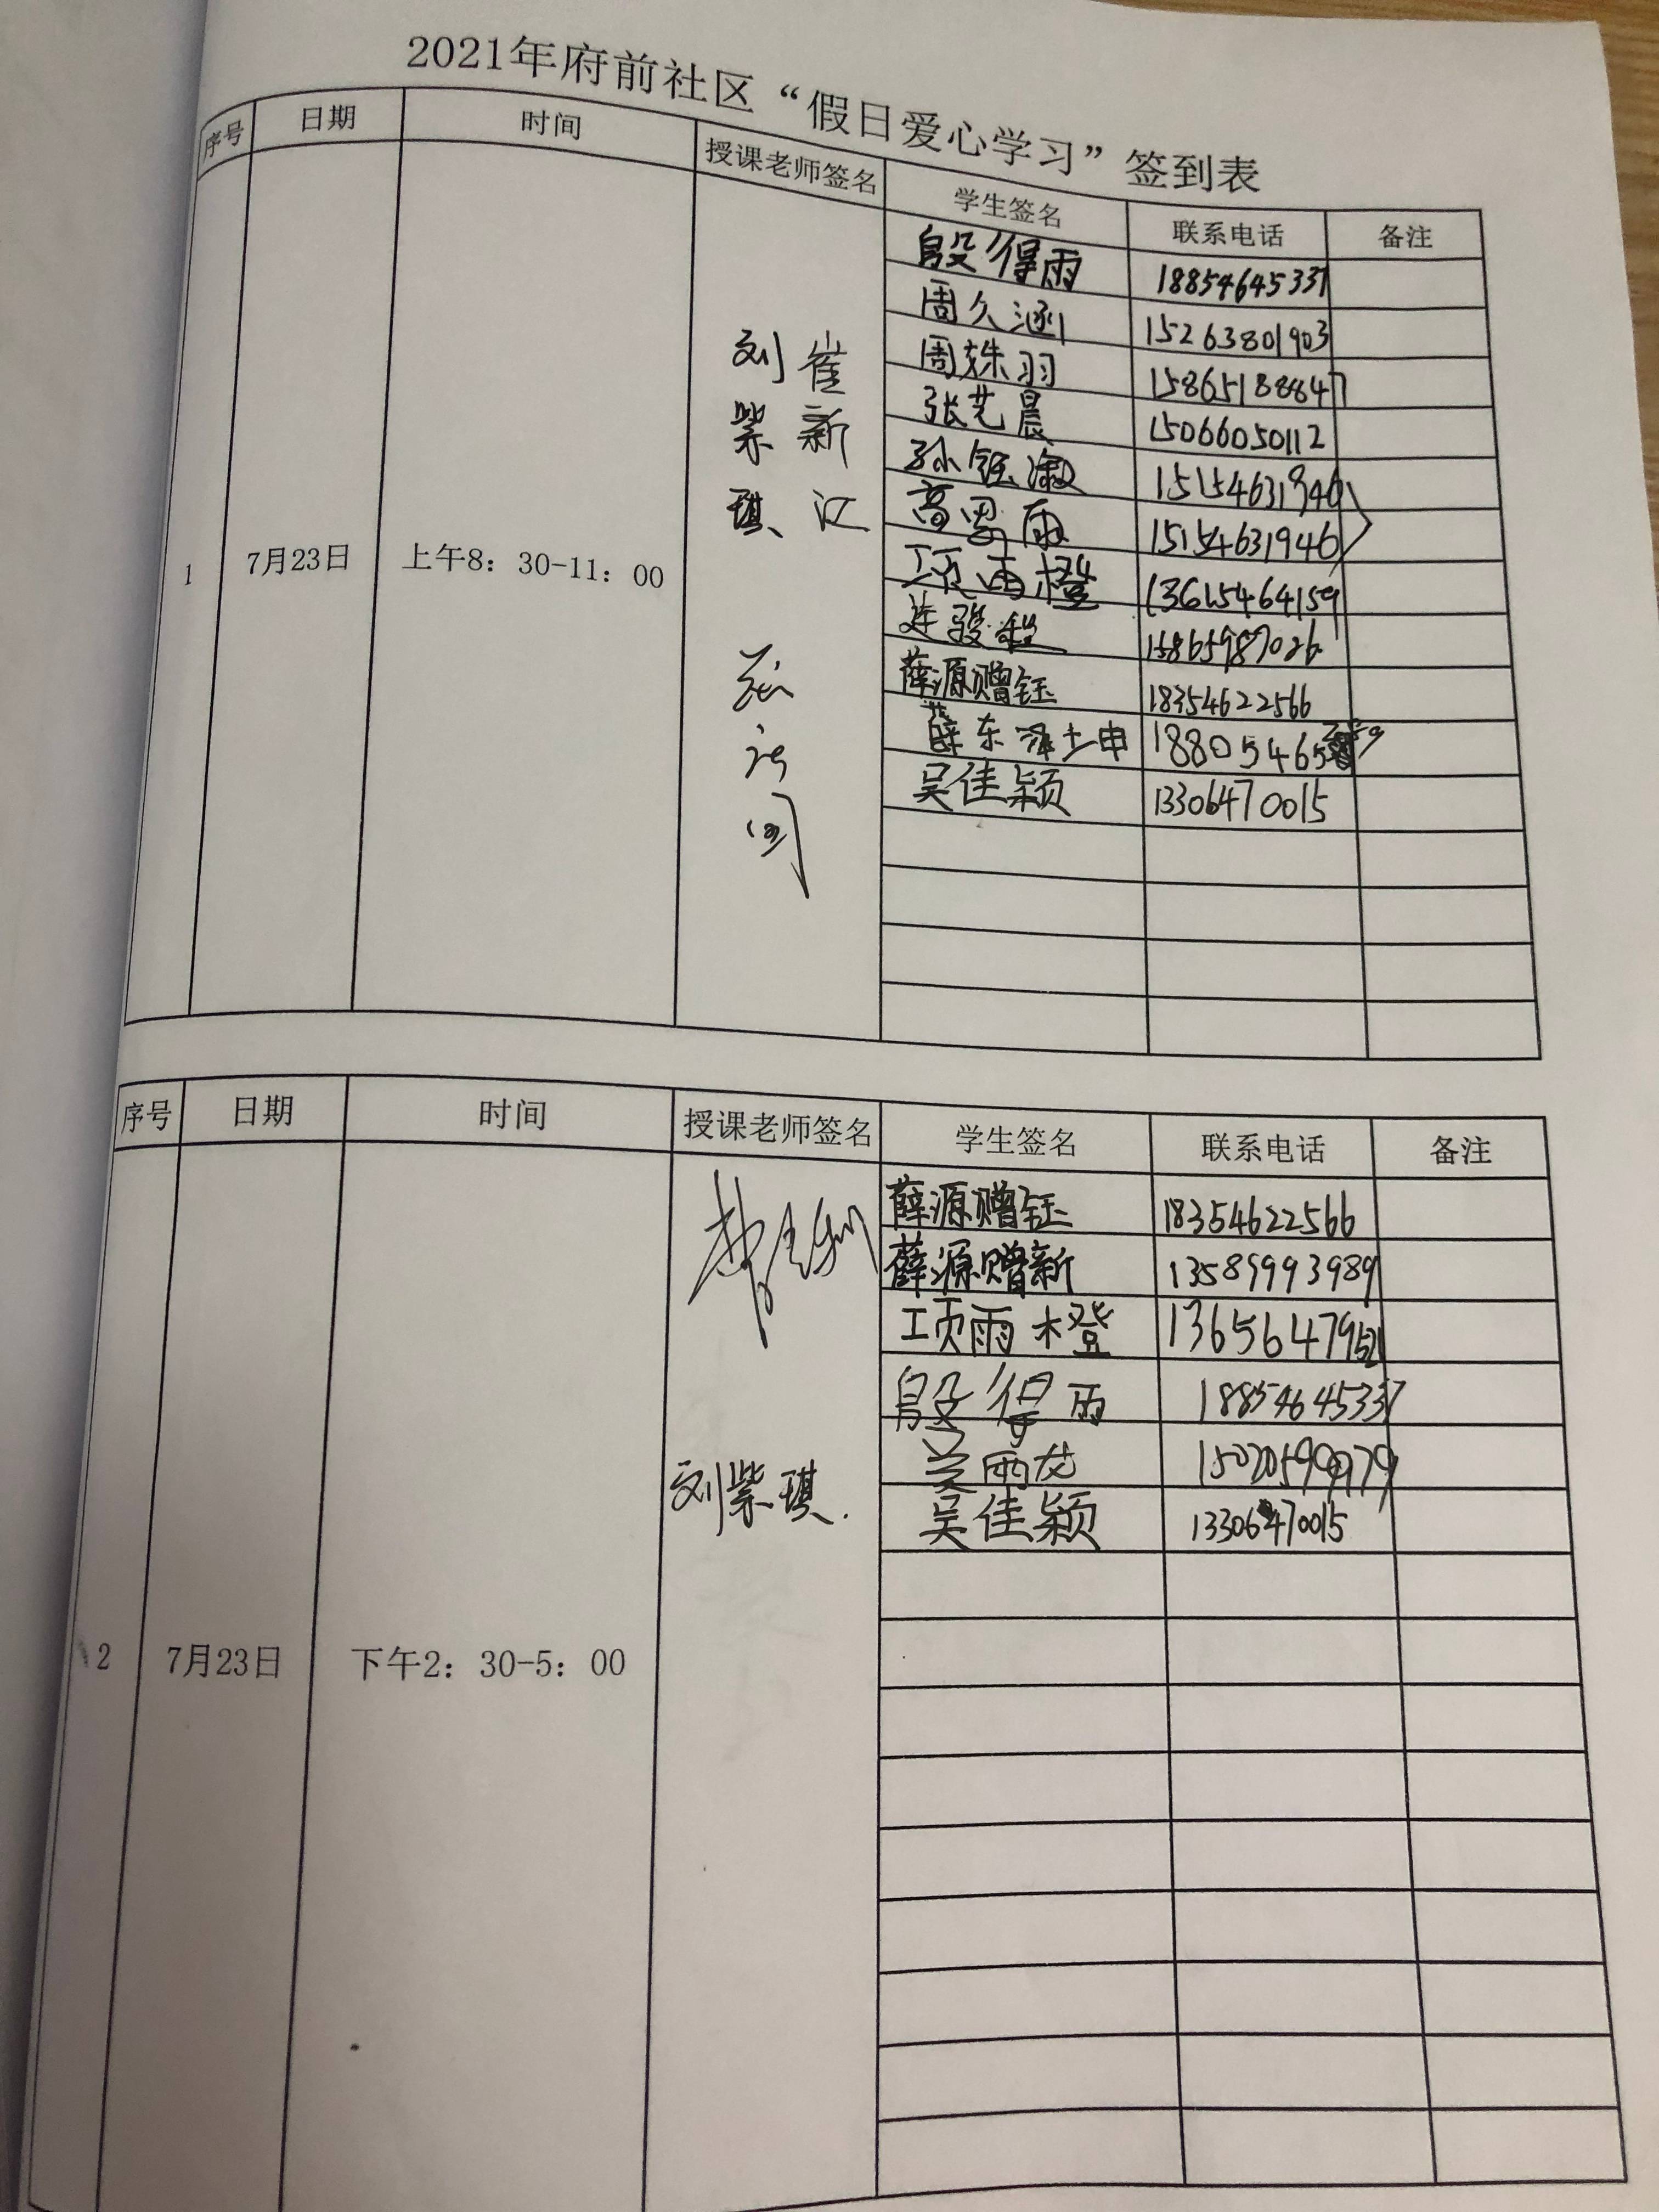 2021年府前社区“假日爱心学习”签到表
序号 日期 时间 授课老师签名 学生签名 联系电话 备注
1 7月23日 上午8：30-11：00
刘紫琪 崔新
段得雨 18854645337
周久涵 15263801903
周姝羽 15865188847
张艺晨 15066050112
孙钰淑 15154631946
高思雨 15154631946
项雨橙 13615464159
骏程 15865987026
薛源赠钰 18354622566
薛东泽坤 18805465
吴佳颖 13306470015
序号 日期 时间 授课老师签名 学生签名 联系电话 备注
2 7月23日 下午2：30-5：00
刘紫琪.
薛源赠钰 18354622566
薛源赠新 13589993989
项雨橙 13656479521
段得雨 18854645337
雨 15020599979
吴佳颖 13306470015